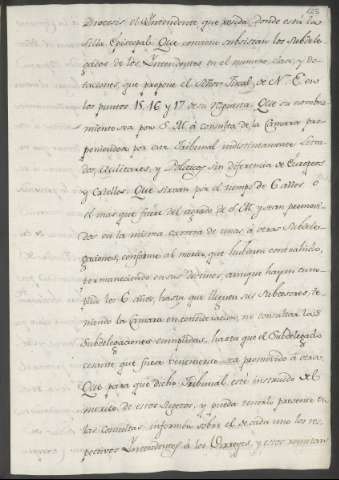 Diocesis el Yntendente que resida donde está la
Silla Episcopal. Que conviene subsistan los Subdele-
gados de los Yntendentes en el numero, clase, y do-
taciones, que propone el Señor Fiscal, de N. E. en
los puntos 15, 16 y 17 de su respuesta. Que su nombra-
miento sea por S. M. á consulta de la Camara pro-
poniendose por este Tribunal indistintamente Letra-
dos, Militares, y Politicos sin diferencia de Europeos
y Criollos. Que sirvan por el tiempo de 6 años ó
el mas que fuere del agrado de S. M. y sean promovi-
dos en la misma carrera de unas á otras Subdele-
gaciones, conforme al merito, que hubieren contrahido,
permaneciendo en sus destinos, aunque hayan cum-
plido los 6 años, hasta que lleguen sus Subcesores, te-
niendo la Camara en consideracion, no consultar las
Subdelegaciones cumplidas, hasta que el Subdelegado
cesante que fuere benemerito sea promovido á otra.
Que para que dicho Tribunal esté instruido del
merito de estos Sugetos, y pueda tenerlo presente en
las consultas informen sobre el de cada uno los res-
pectivos Yntendentes á los Virreyes, y estos remitan